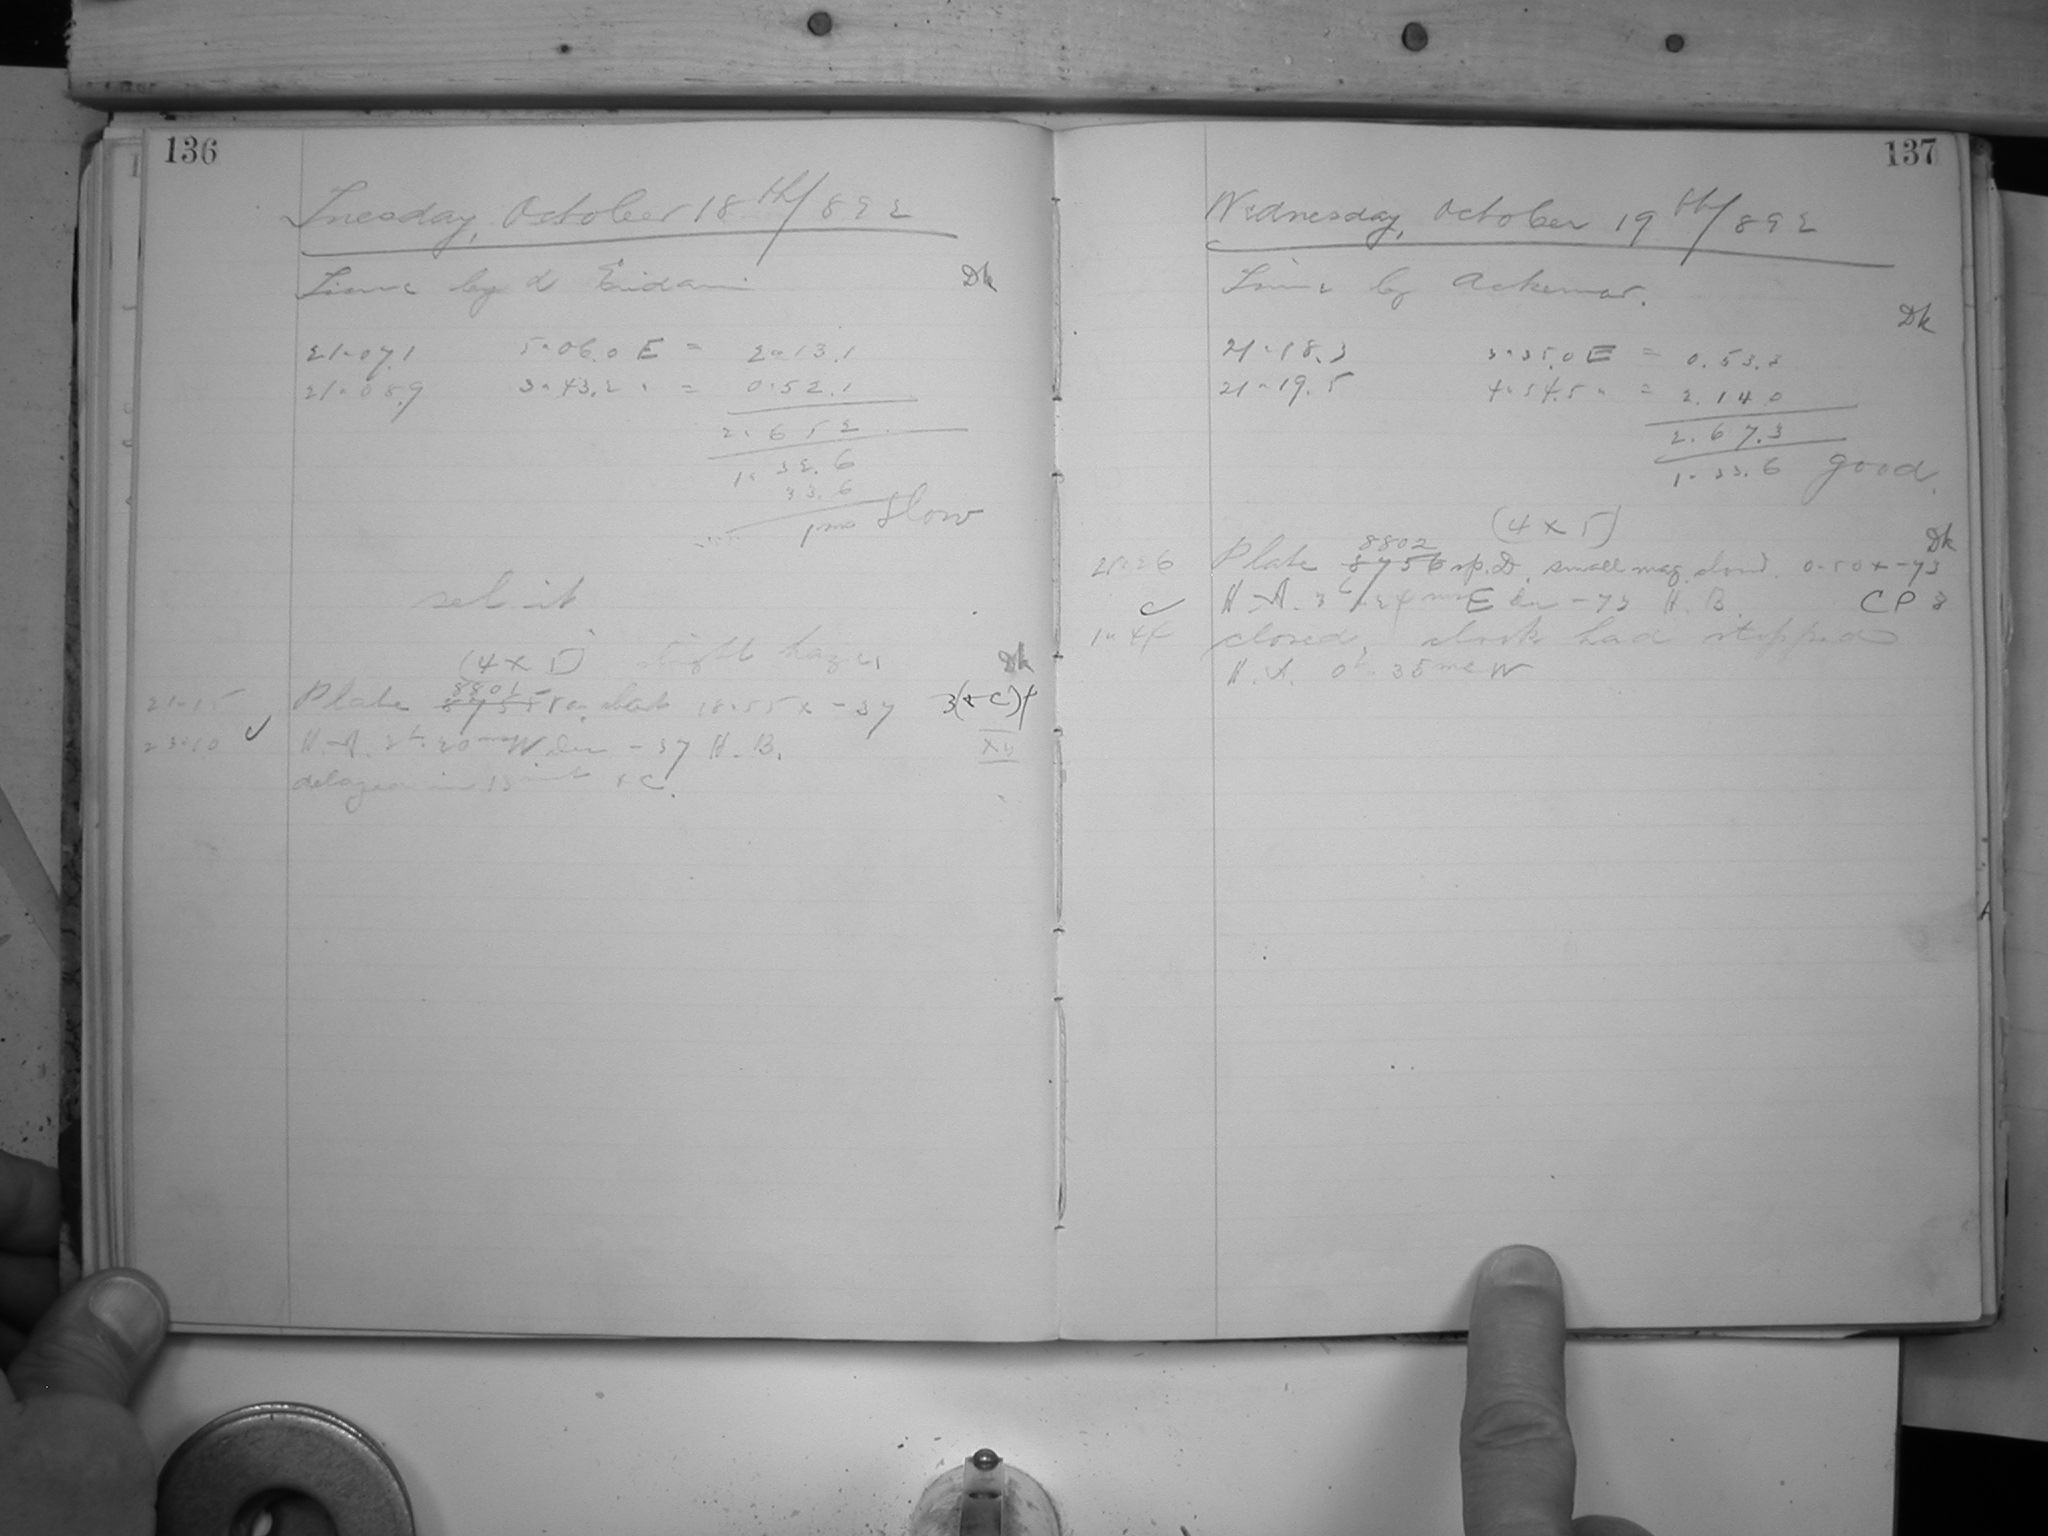 136
Tuesday, October 18th/892
Time by α Eridani
Dk
21.07.1 5.06.0 E = 2.13.1
21.08.9 3.43.2 " = 0.52.1
2.65.2
1.32.6
33.6
1m slow
set it
(4 x 5) slight haze
Dk
21.15 Plate 8801 18.55 x -37 3(+C)f
23.10 ✓ H.A. 2h.20m W Dec -37 H.B.
+C.
137
Wednesday, October 19th/892
Time by Achernar.
Dk
21.18.3 3.35.0 E = 0.53.3
21.19.5 4.54.5 " = 2.14.0
2.67.3
1.33.6 good.
(4 x 5)
Dk
8802
21.26 Plate 8756 sp. D. small mag. cloud. 0.50 x -73
✓ H.A. E Dec -73 H.B. CP 3
closed, clock had stopped
H.A. 0h.35m W